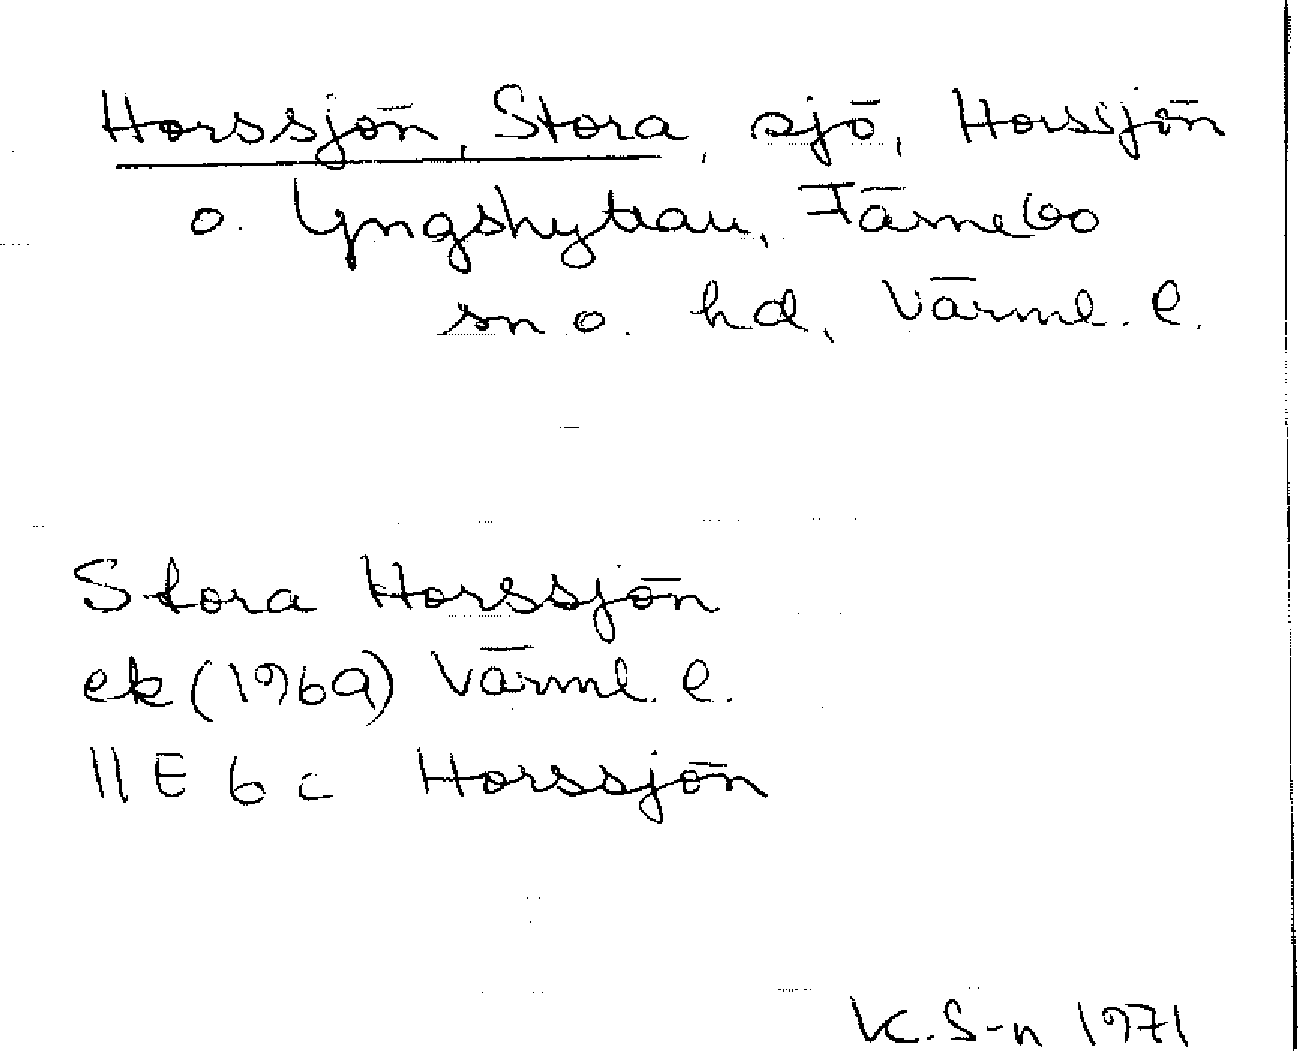 Horssjön, Stora, sjö, Horssjön
o. Yngshyttan, Färnebo
sn o. hd, Värml. l.
Stora Horssjön
ek (1969) Värml. l.
11 E 6 c Horssjön
K. S-n 1971